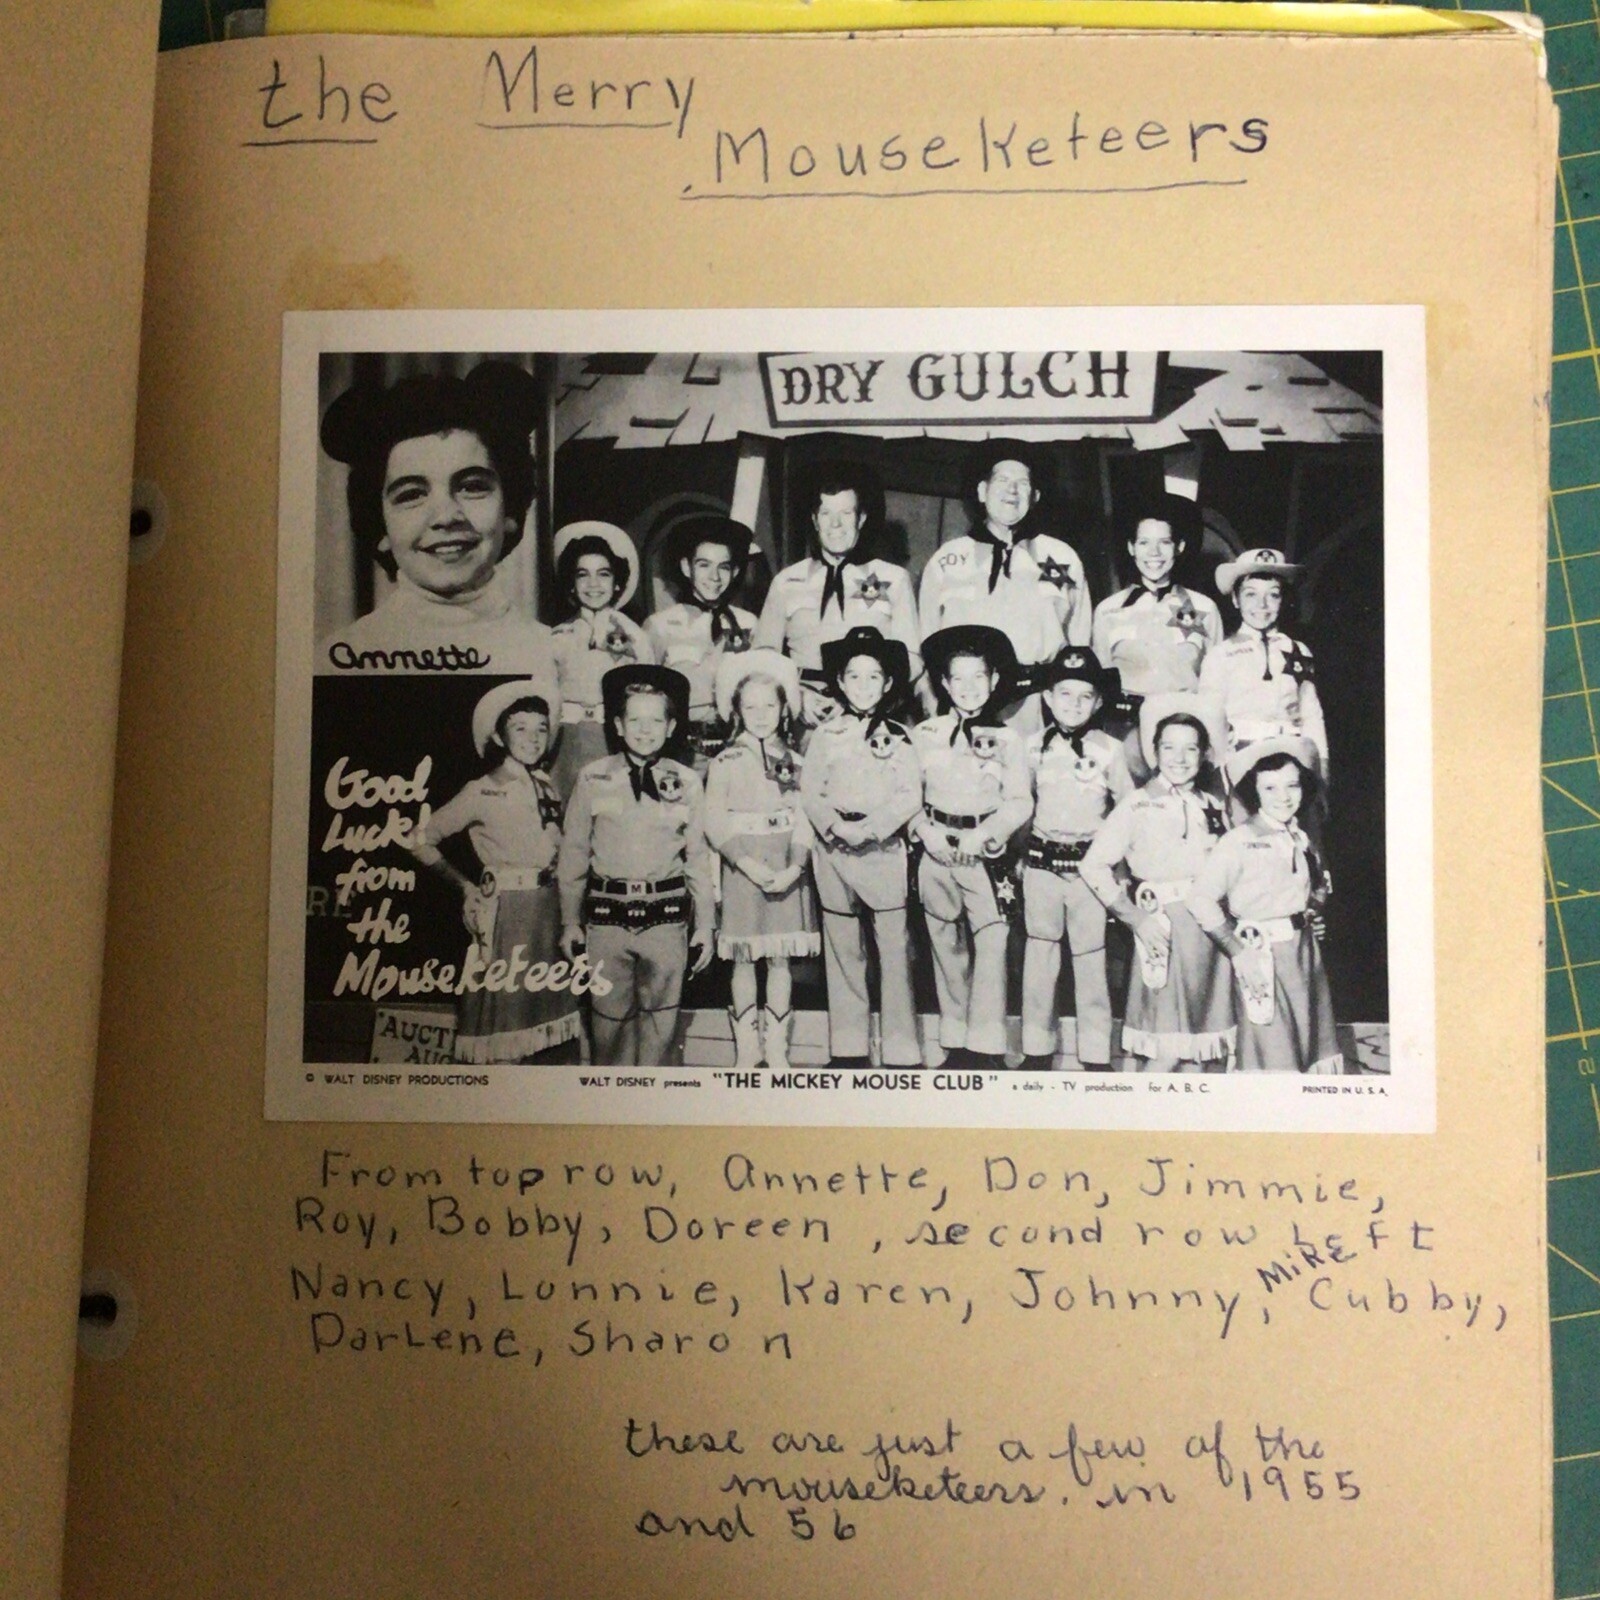 the Merry
Mouseketeers
DRY GULCH
ROY
Annette
Good
Luck!
from
the
Mouseketeers
M
M
AUCTI
AUC
© WALT DISNEY PRODUCTIONS WALT DISNEY presents "THE MICKEY MOUSE CLUB" a daily - TV production for A. B. C. PRINTED IN U. S. A.
From top row, Annette, Don, Jimmie,
Roy, Bobby, Doreen, second row Left
Nancy, Lonnie, Karen, Johnny, Mike Cubby,
Darlene, Sharon
these are just a few of the
mouseketeers. in 1955
and 56
2